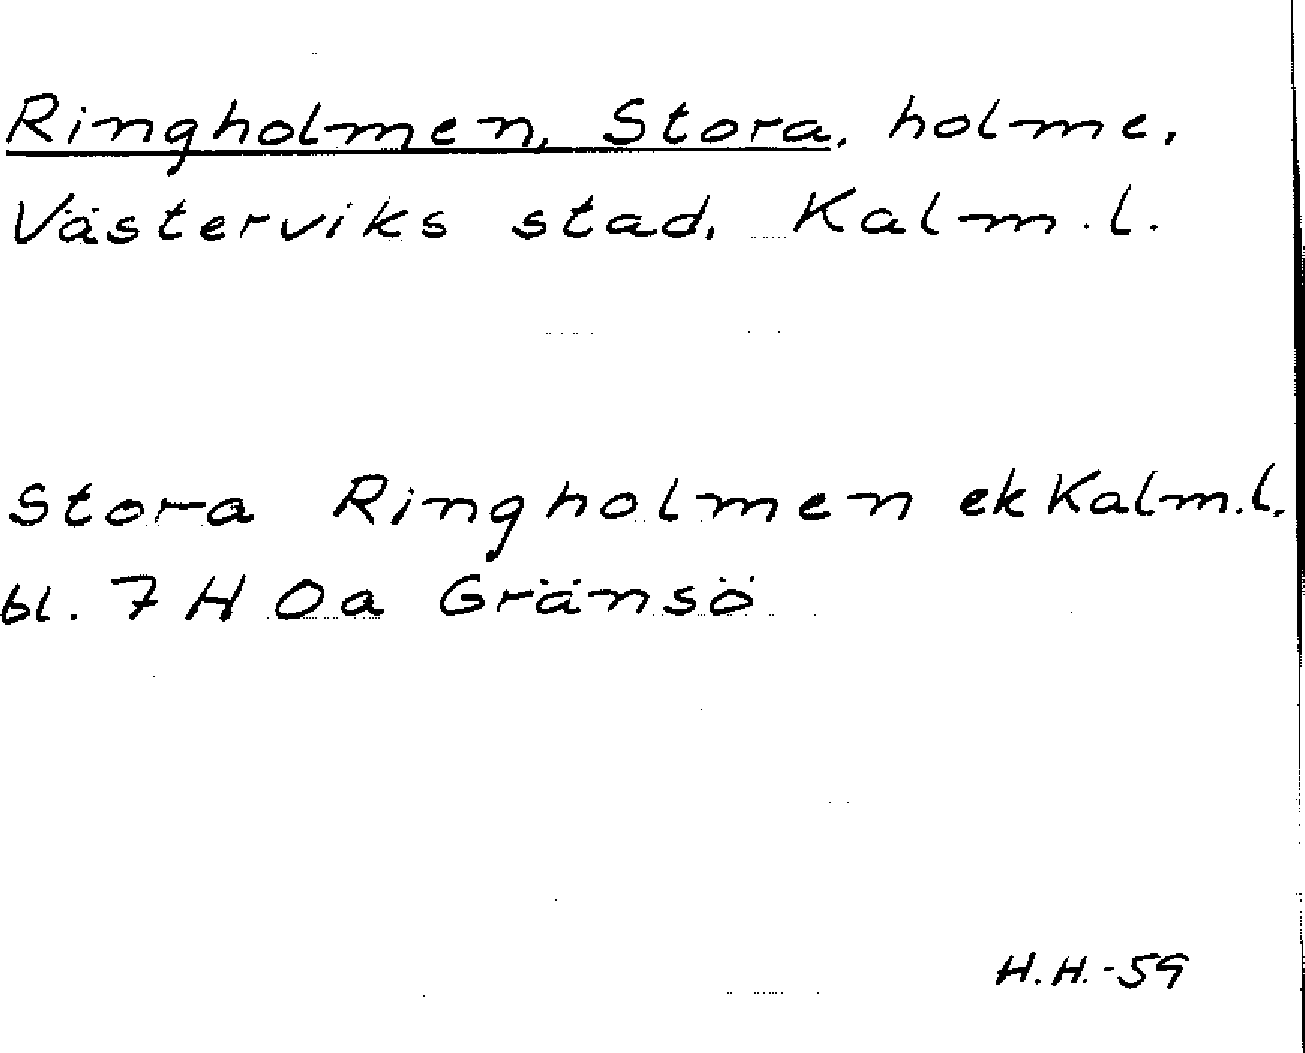 Ringholmen, Stora, holme,
Västerviks stad, Kalm.l.
Stora Ringholmen ek Kalm.l.
bl. 7 H 0a Gränsö
H.H.-59